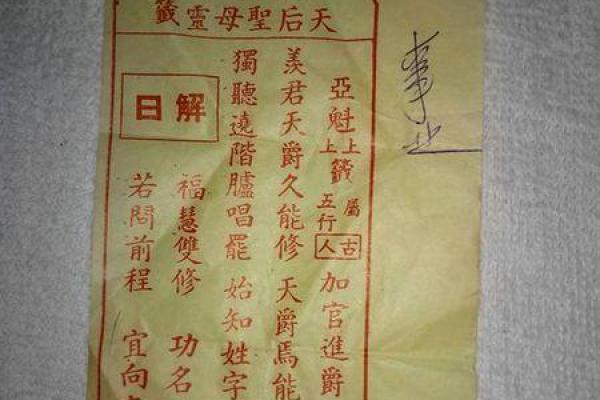 天后聖母靈籤
事业
亞魁 上上籤 屬五行 古人 加官進爵
羨君天爵久能修 天爵焉能
獨聽遶階臚唱罷 始知姓字
解曰
福慧雙修 功名
若問前程 宜向